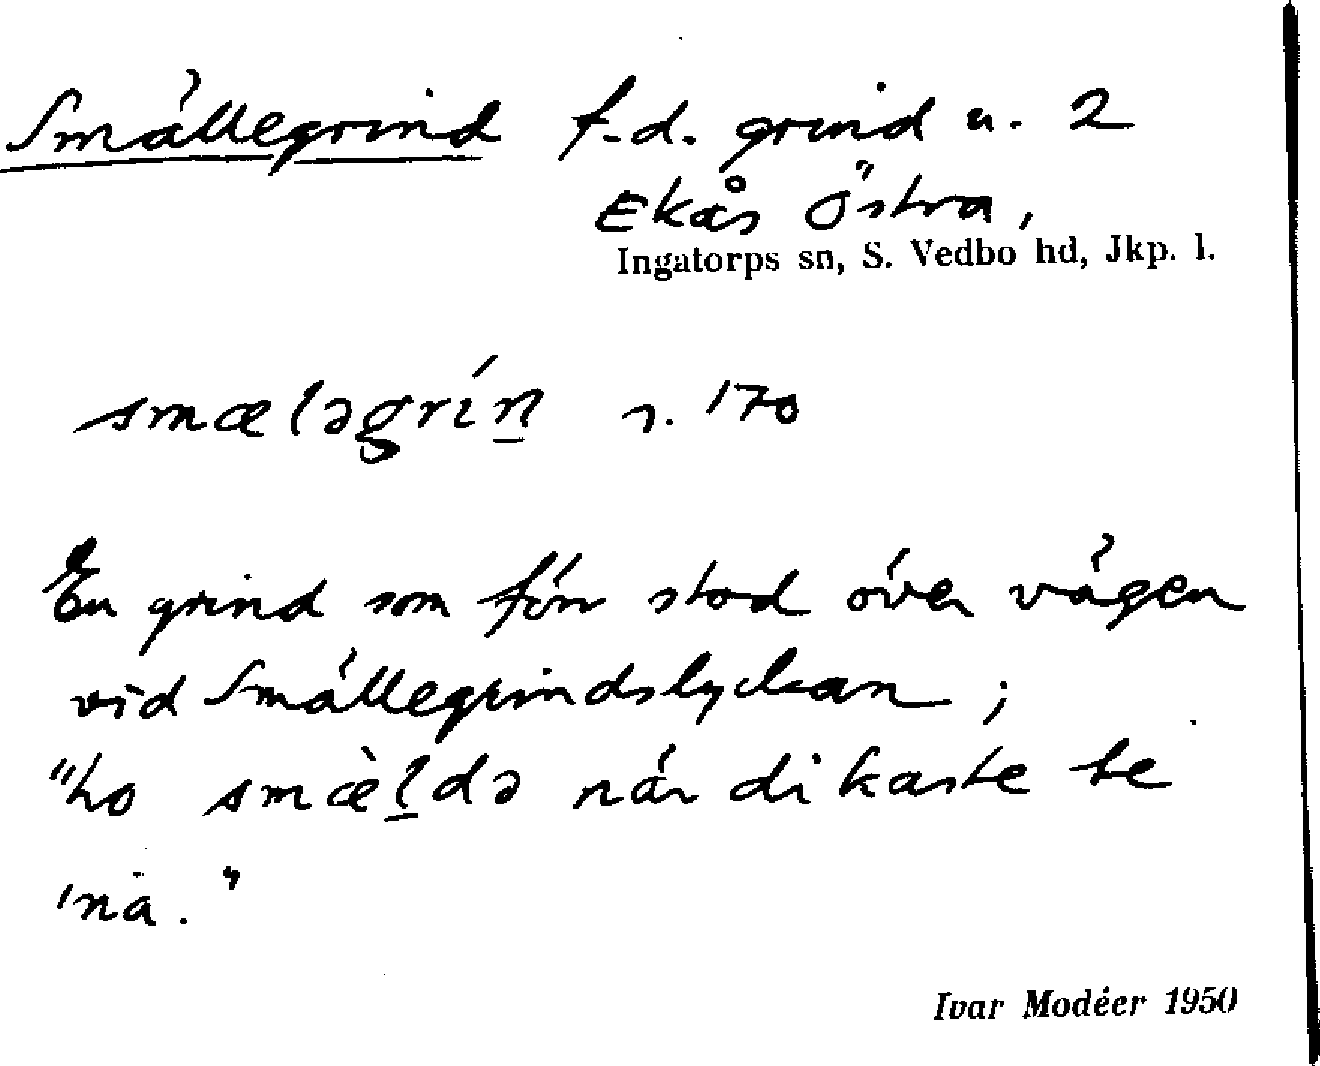 Smällegrind f.d. grind u. 2
Ekås Östra,
Ingatorps sn, S. Vedbo hd, Jkp. l.
smæləgrín s. 170
En grind som förr stod över vägen
vid Smällegrindslyckan;
"ho smæ̀l̠də när di kaste te
'nä."
Ivar Modéer 1950